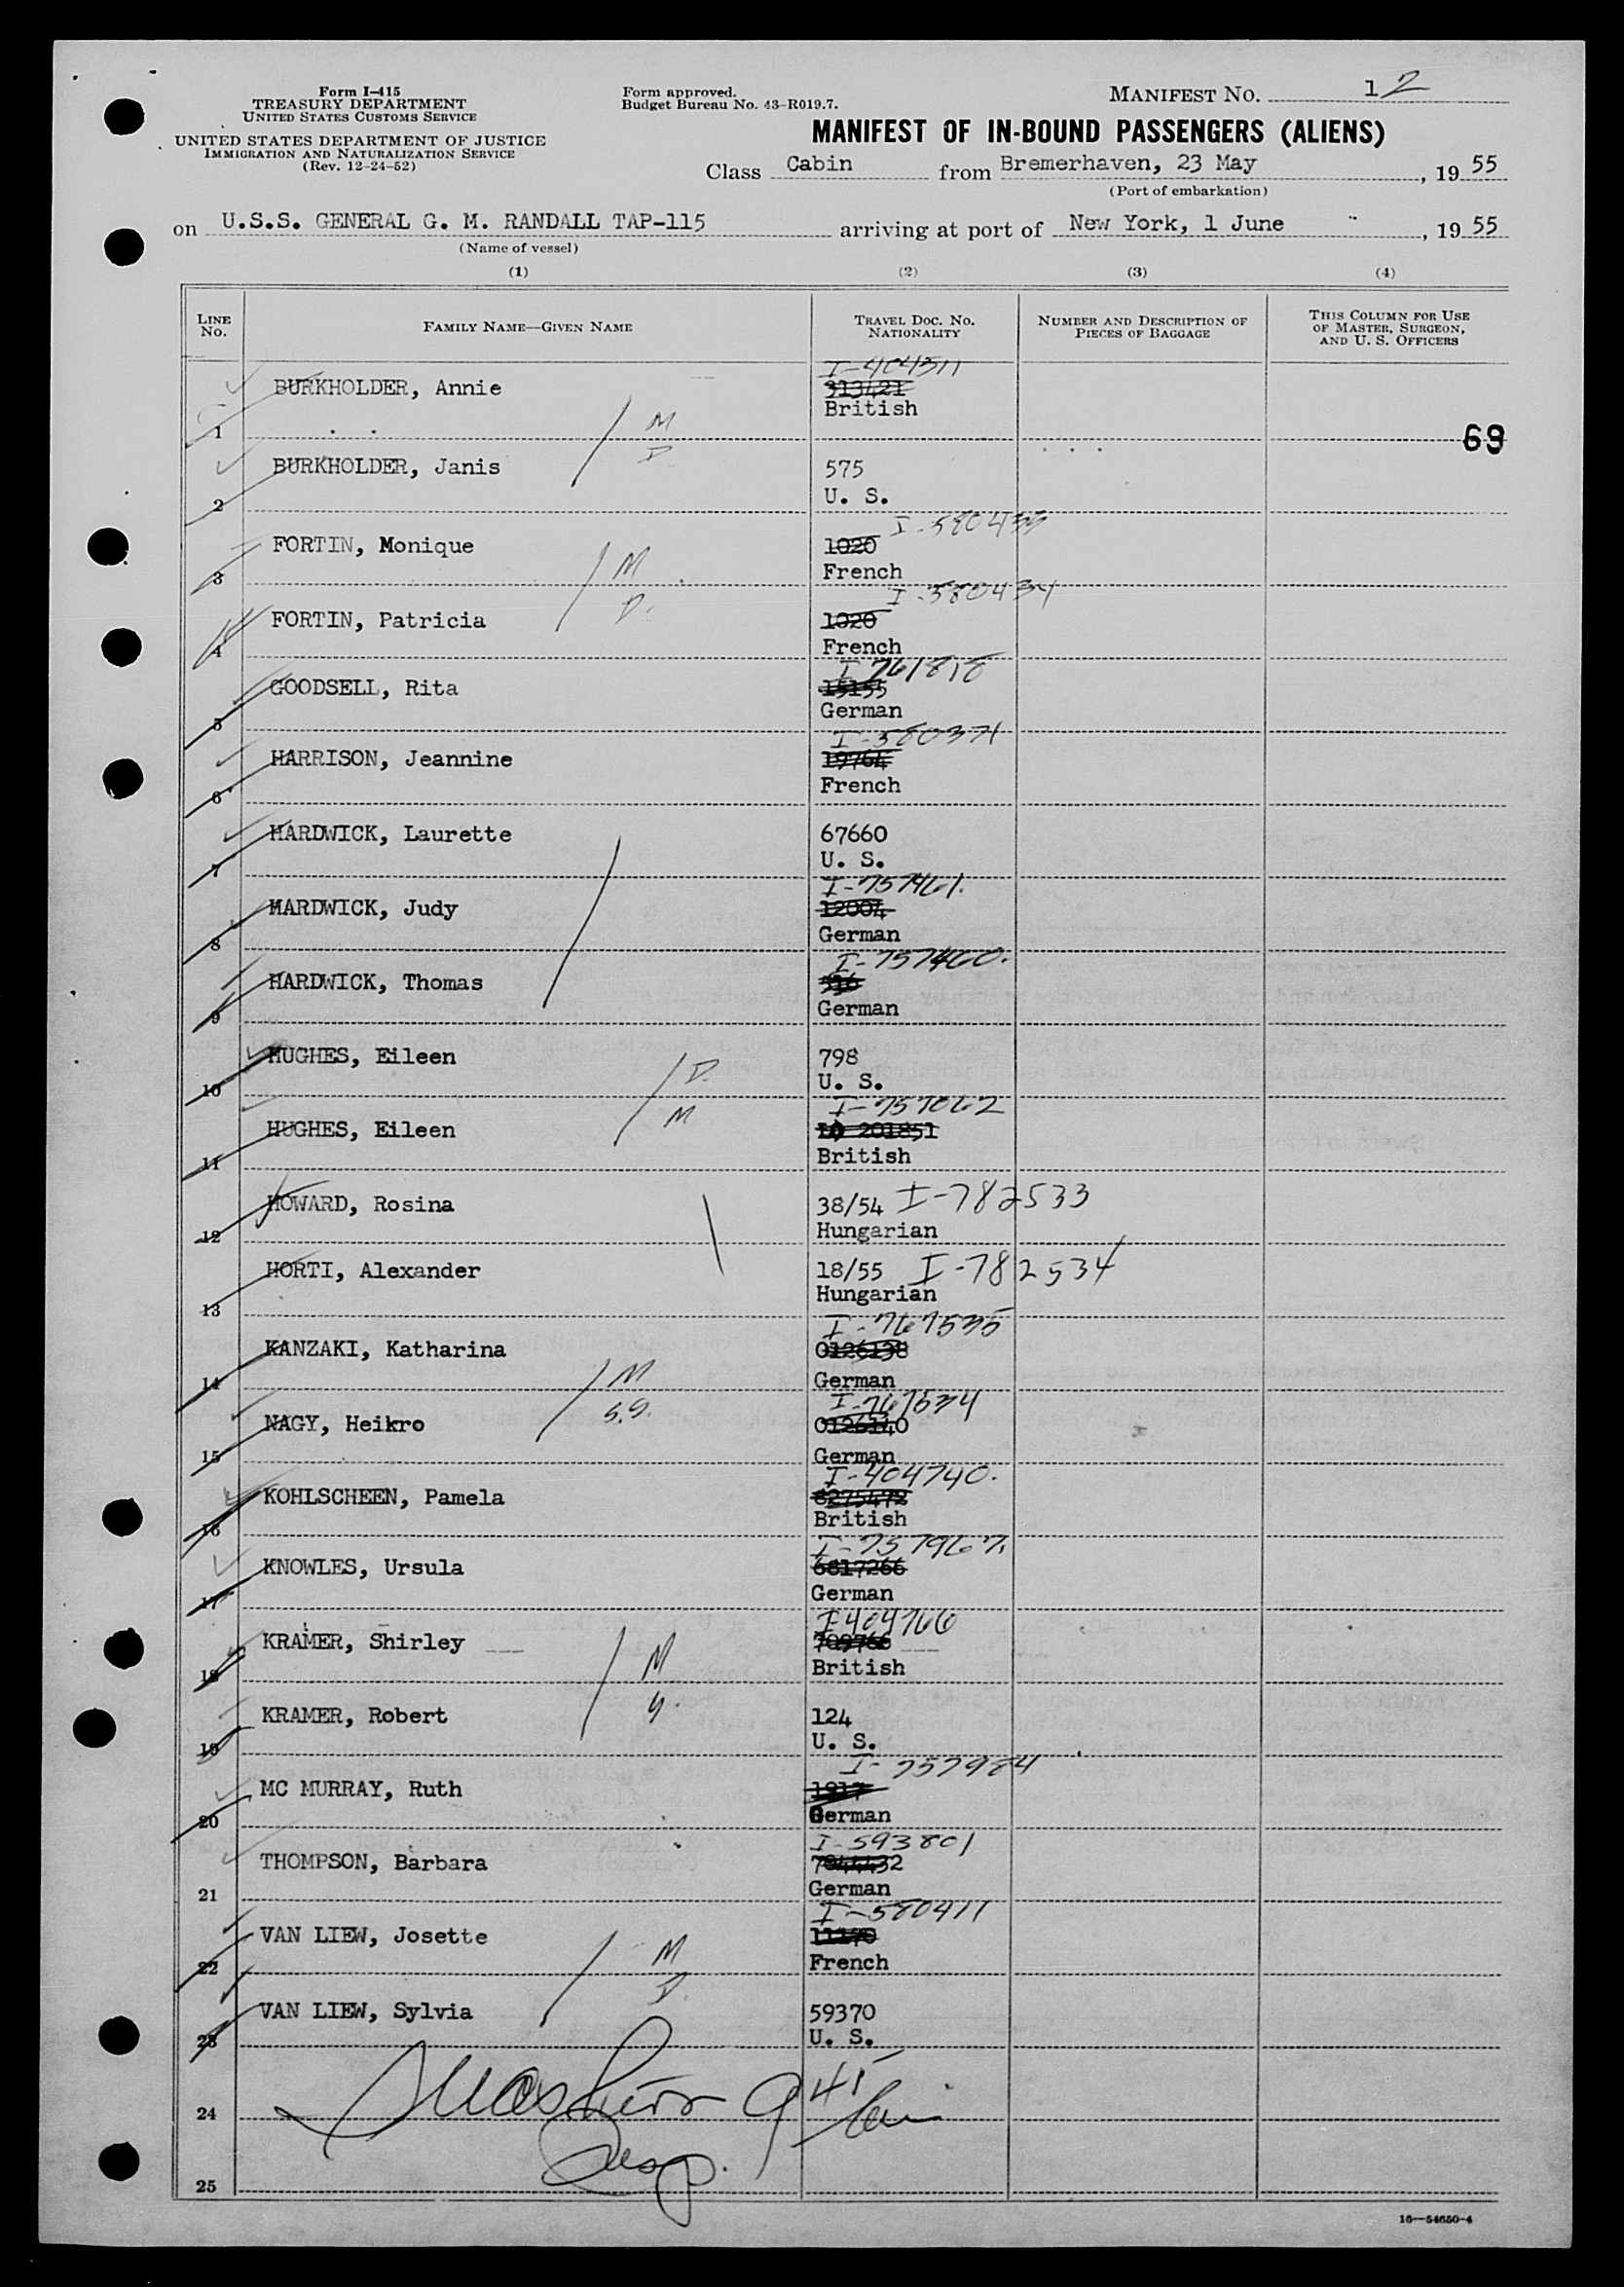 Form I-415
TREASURY DEPARTMENT
UNITED STATES CUSTOMS SERVICE
UNITED STATES DEPARTMENT OF JUSTICE
IMMIGRATION AND NATURALIZATION SERVICE
(Rev. 12-24-52)
Form approved.
Budget Bureau No. 43-R019.7.
MANIFEST NO. 12
MANIFEST OF IN-BOUND PASSENGERS (ALIENS)
Class Cabin from Bremerhaven, 23 May, 1955
(Port of embarkation)
on U.S.S. GENERAL G. M. RANDALL TAP-115 arriving at port of New York, 1 June, 1955
(Name of vessel)
(1) (2) (3) (4)
LINE NO. FAMILY NAME—GIVEN NAME TRAVEL DOC. NO. NATIONALITY NUMBER AND DESCRIPTION OF PIECES OF BAGGAGE THIS COLUMN FOR USE OF MASTER, SURGEON, AND U. S. OFFICERS
I-404311
BURKHOLDER, Annie 313421
British
1 M 69
D
BURKHOLDER, Janis 575
2 U. S.
I-580433
FORTIN, Monique 1020
3 M French
D. I-580434
FORTIN, Patricia 1020
4 French
I-761818
GOODSELL, Rita 15155
5 German
I-580371
HARRISON, Jeannine 19764
6 French
HARDWICK, Laurette 67660
7 U. S.
I-757461.
HARDWICK, Judy 12004
8 German
I-757460.
HARDWICK, Thomas 316
9 German
HUGHES, Eileen D. 798
10 U. S.
M I-757062
HUGHES, Eileen 201851
11 British
HOWARD, Rosina 38/54 I-782533
12 Hungarian
HORTI, Alexander 18/55 I-782534
13 Hungarian
I-767535
KANZAKI, Katharina 0126138
14 M German
S.S. I-767534
NAGY, Heikro 0126140
15 German
I-404740.
KOHLSCHEEN, Pamela 8275472
16 British
I-757967.
KNOWLES, Ursula 6817266
17 German
I-404766
KRAMER, Shirley 709766
18 M British
S.
KRAMER, Robert 124
19 U. S.
I-757984
MC MURRAY, Ruth 1917
20 German
I-593801
THOMPSON, Barbara 7844432
21 German
I-580411
VAN LIEW, Josette 11170
22 M French
D.
VAN LIEW, Sylvia 59370
23 U. S.
24
Insp.
25
16—54650-4